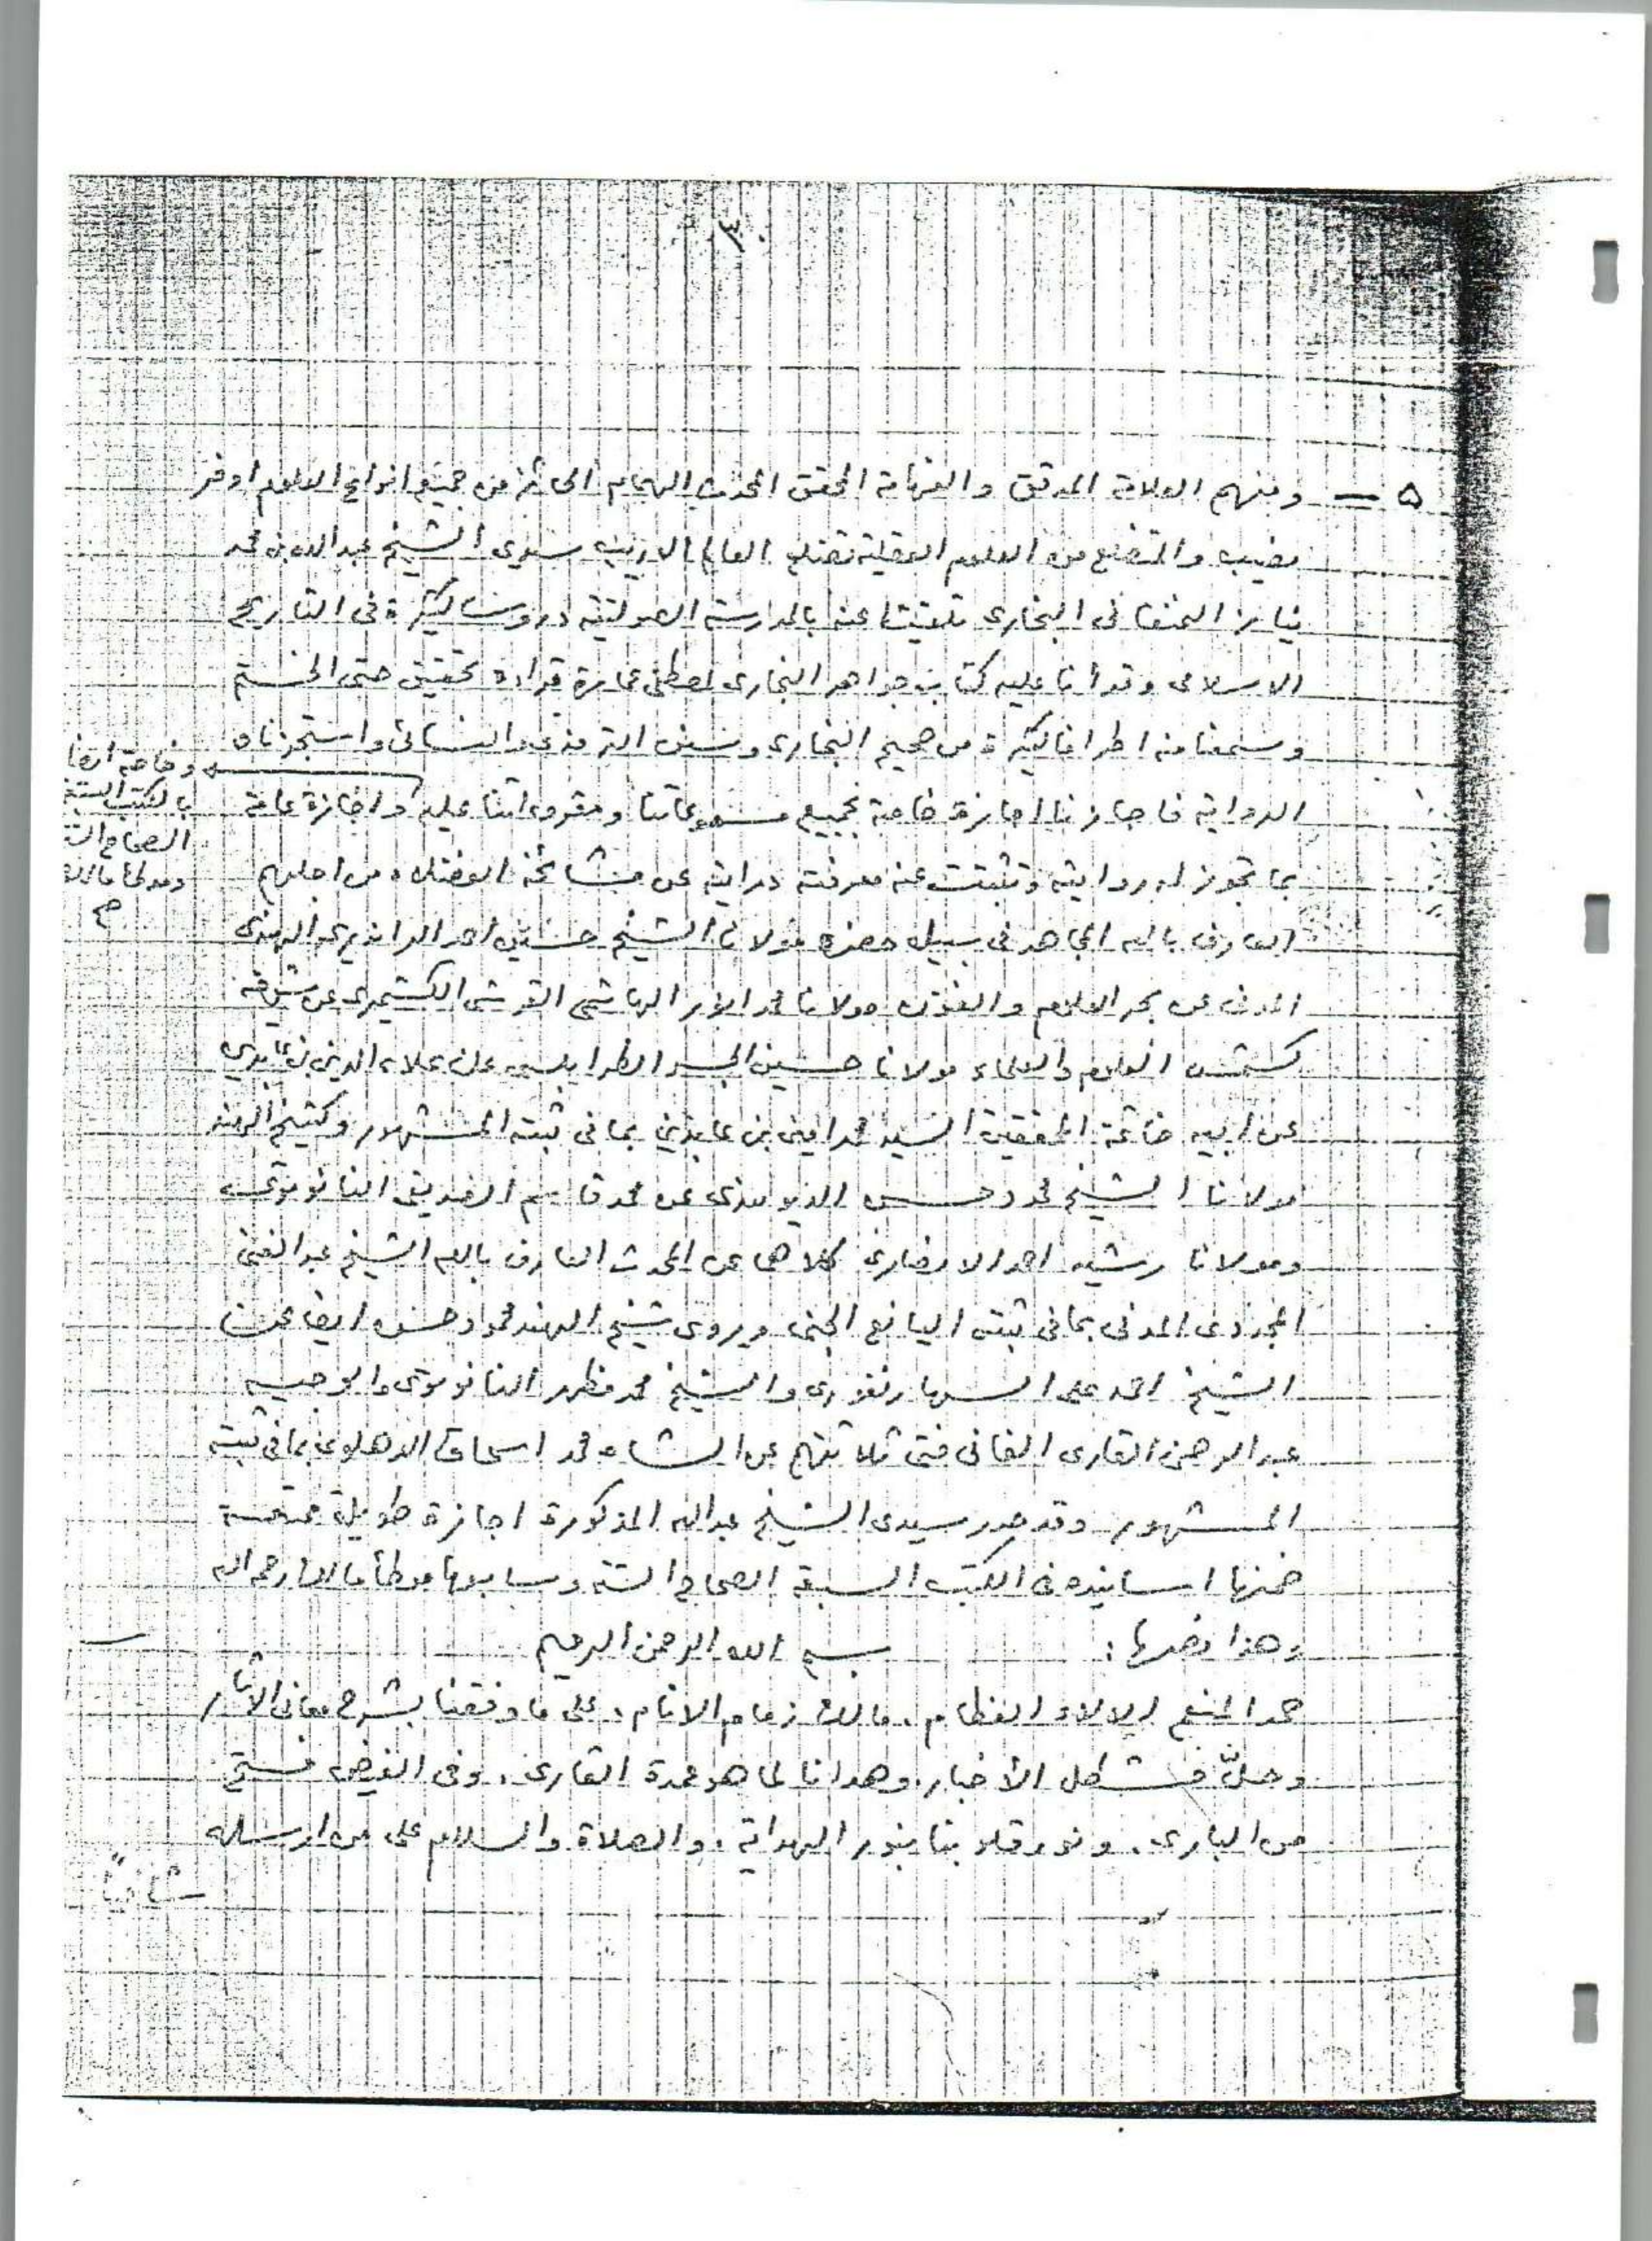 ٣
٥ — ومنهم العلامة المدقق والفهامة المحقق المحدث الهمام الحائز من جميع انواع العلوم اوفر
نصيب والمتضلع من العلوم العقلية تضلع العالم الاريب سيدي الشيخ عبد الله بن محمد
نياز البخاري تلقيت عنه بالمدرسة الصولتية دروسا كثيرة في التاريخ
الاسلامي وقرأنا عليه كتاب جواهر البخاري لمصطفى عمارة قراءة تحقيق حتى الختم
وسمعنا منه اطرافا كثيرة من صحيح البخاري وسنن الترمذي والنسائي واستجزناه
الرواية فاجازنا اجازة خاصة بجميع مسموعاتنا ومقروءاتنا عليه واجازة عامة
وخاصة ايضا
بالكتب الستة
الصحاح
وموطأ مالك
صح
بما تجوز له روايته وتثبتت عنه معرفته درايته عن مشائخه الفضلاء من اجلهم
العارف بالله المجاهد في سبيل حضرة مولانا الشيخ حسين احمد الهندي
المدني عن بحر العلوم والفنون مولانا محمد انور الهاشمي القرشي الكشميري عن
شمس العلوم والعلماء مولانا حسين الجسر الطرابلسي عن علاء الدين بن عابدين
عن ابيه خاتمة المحققين السيد محمد امين بن عابدين بما في ثبته المشهور وكشيخ الهند
مولانا الشيخ محمود حسن الديوبندي عن محمد قاسم الصديقي النانوتوي
ومولانا رشيد احمد الانصاري كلاهما عن المحدث العارف بالله الشيخ عبد الغني
المجددي المدني بما في ثبته اليانع الجني ويروي شيخ الهند محمود حسن ايضا عن
الشيخ احمد علي السهارنفوري والشيخ محمد مظهر النانوتوي والوجيه
عبد الرحمن القاري الفاني فتي ثلاثتهم عن الشاه محمد اسحاق الدهلوي بما في ثبته
المشهور وقد حرر سيدي الشيخ عبد الله المذكورة اجازة طويلة ممتعة
ضمنها اسانيده في الكتب السبعة الصحاح الستة وسابعها موطأ مالك رحمه الله
وهذا نصها : بسم الله الرحمن الرحيم
حمدا لمنعم الالاء العظام ، مالك زمام الانام ، على ما وفقنا بشرح معاني الآثار
وحلّ مشكل الأخبار . وهدانا لما هو عمدة القاري . وفي الفيض فتح
من الباري . ونور قلوبنا بنور الهداية . والصلاة والسلام على من ارسله
شاهداً